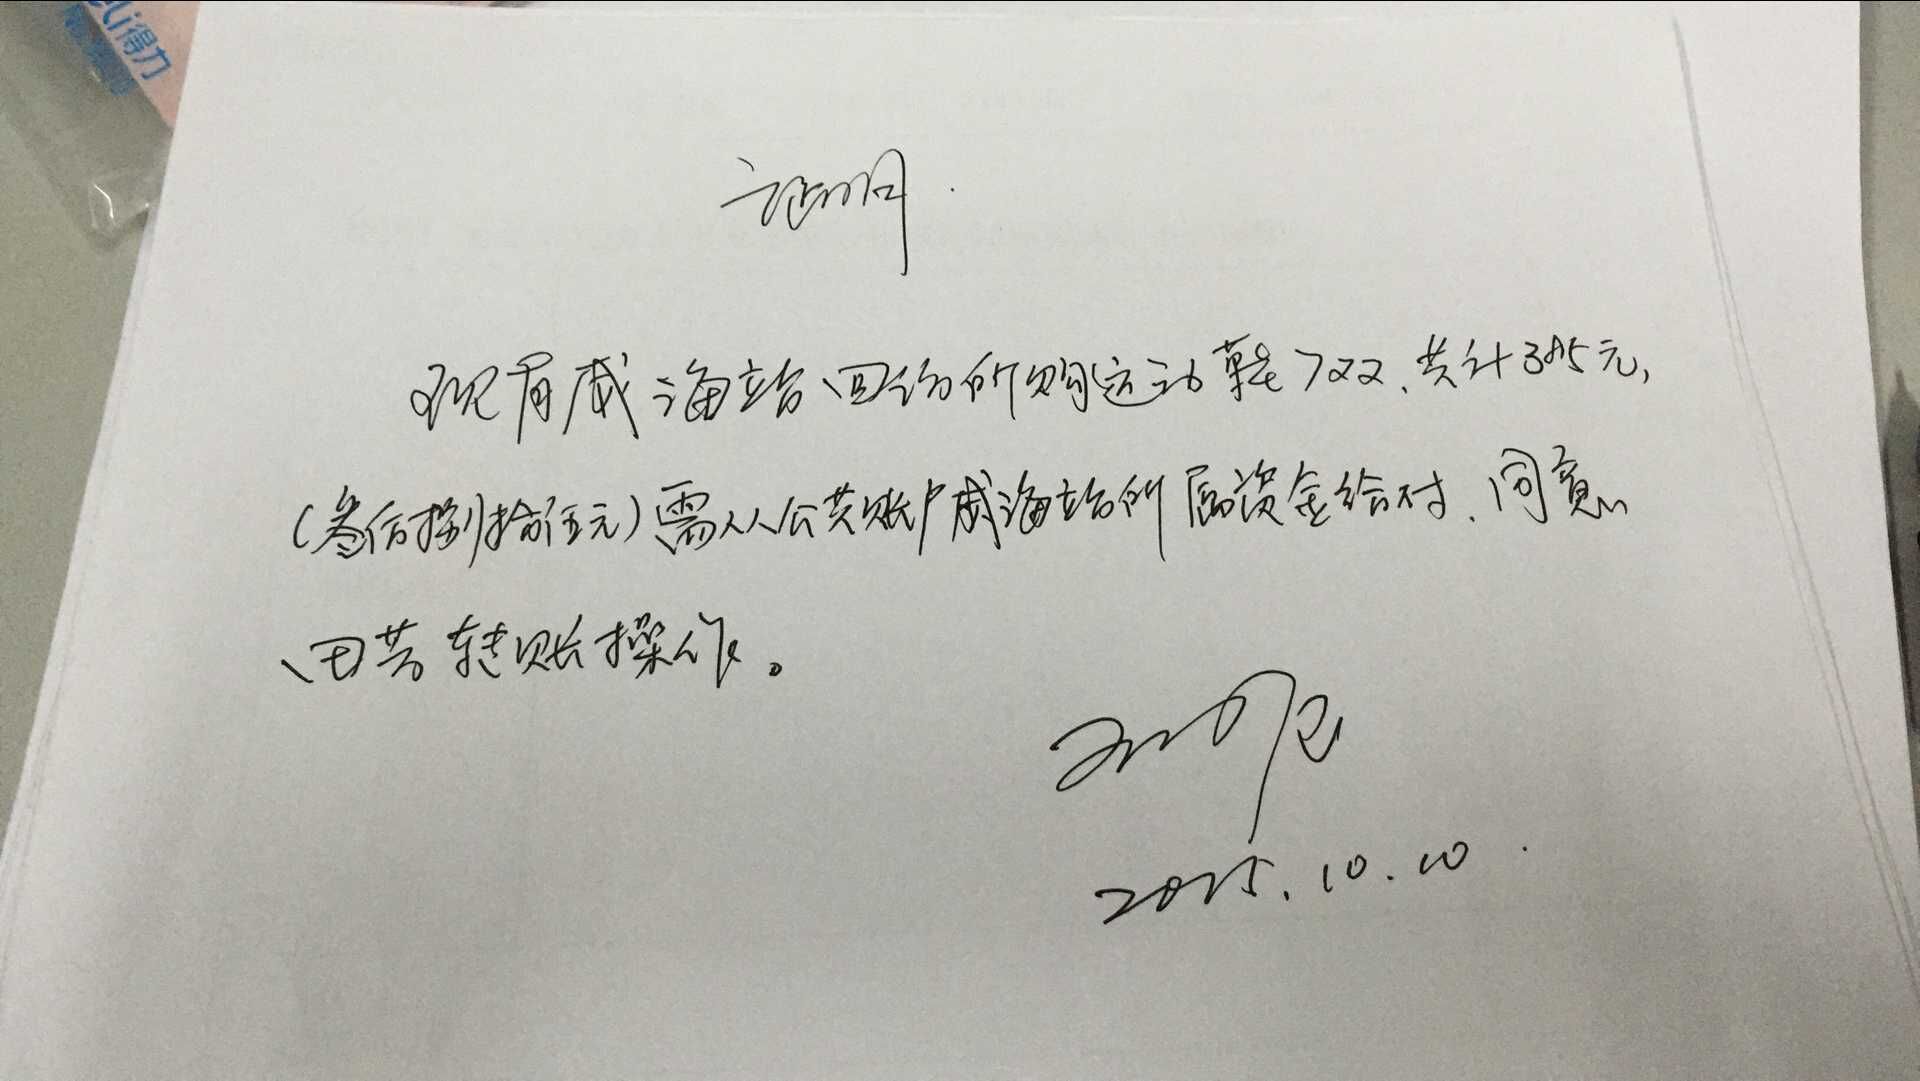 得力
证明
现有威海站回访所购运动鞋7双、共计385元,
(叁佰捌拾伍元)需从公共账户威海站所属资金给付、同意
田芳转账操作。
2025.10.10